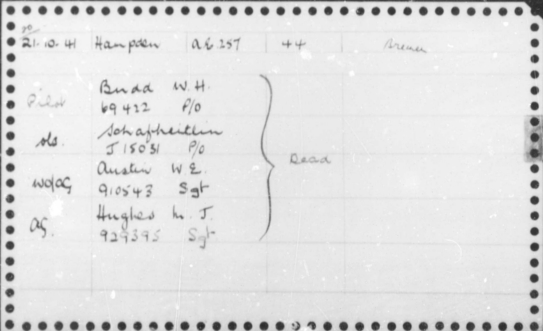 20
21.10.41 Hampden AE 257 44 Bremen
Pilot Budd W.H.
69422 P/O
obs. Schafheitlin
J15031 P/O
WO/AG Austin W.E.
910543 Sgt
Dead
AG. Hughes M. J.
929395 Sgt